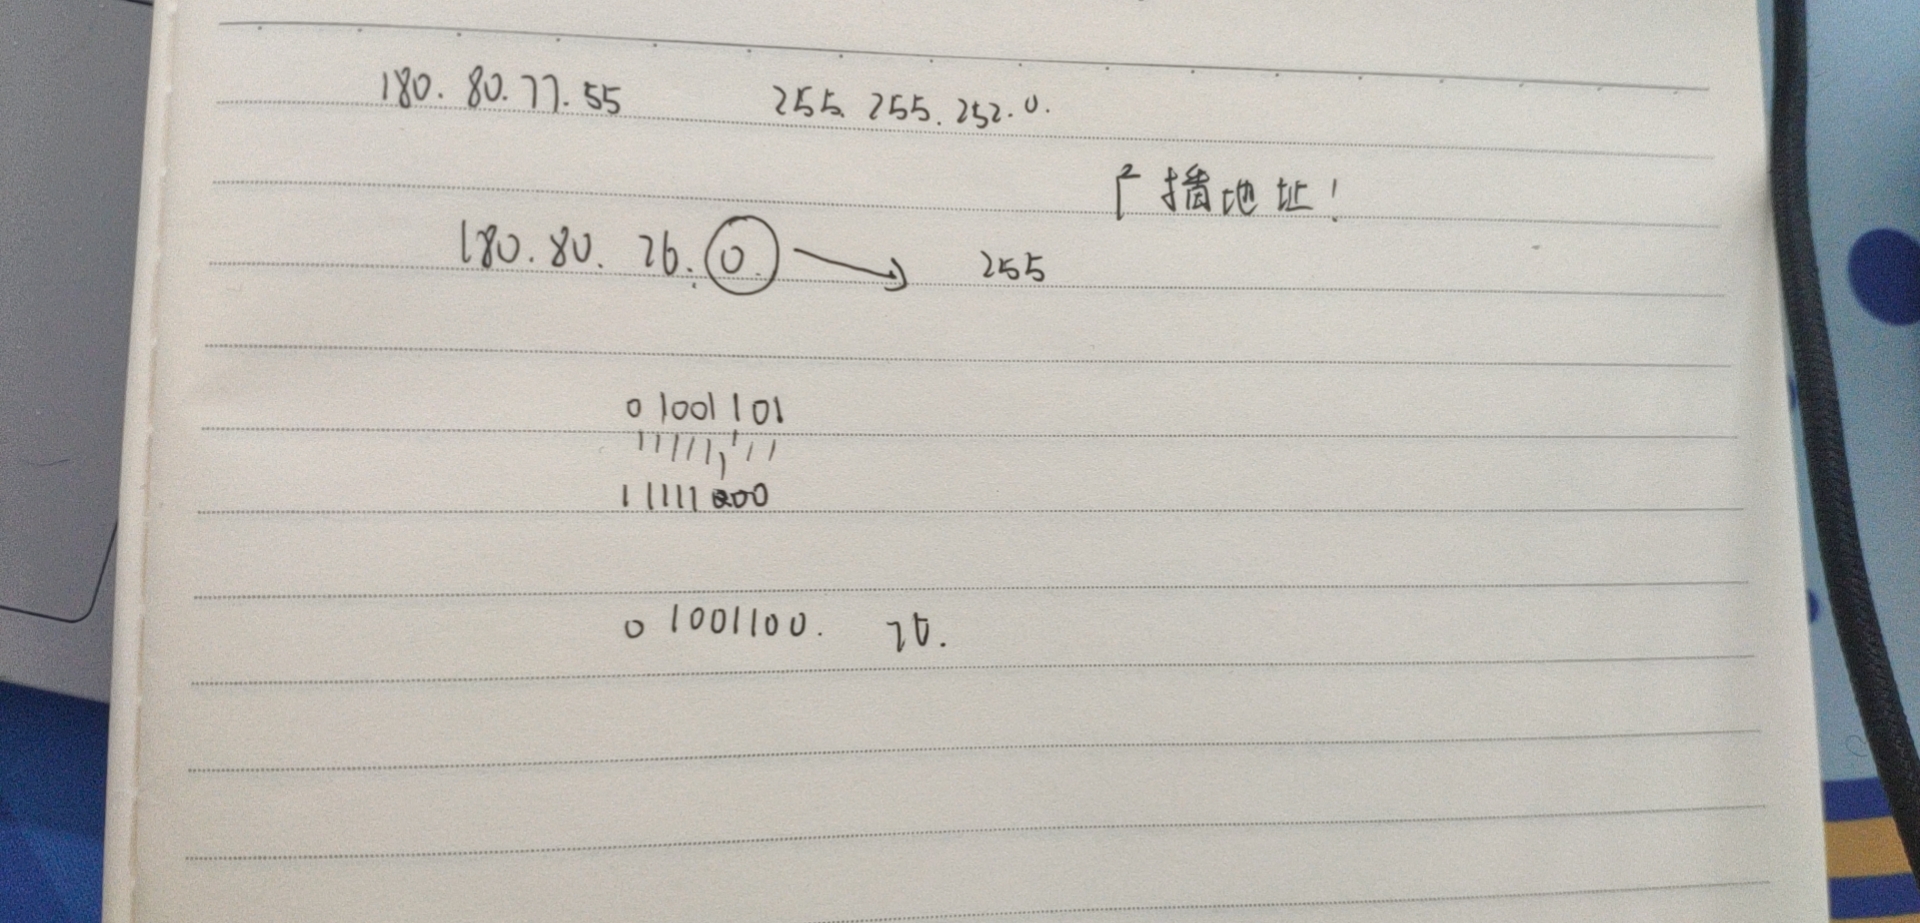 180. 80. 77. 55 255. 255. 252. 0.
广播地址!
180. 80. 76. 0. → 255
01001101
11111000
01001100. 76.